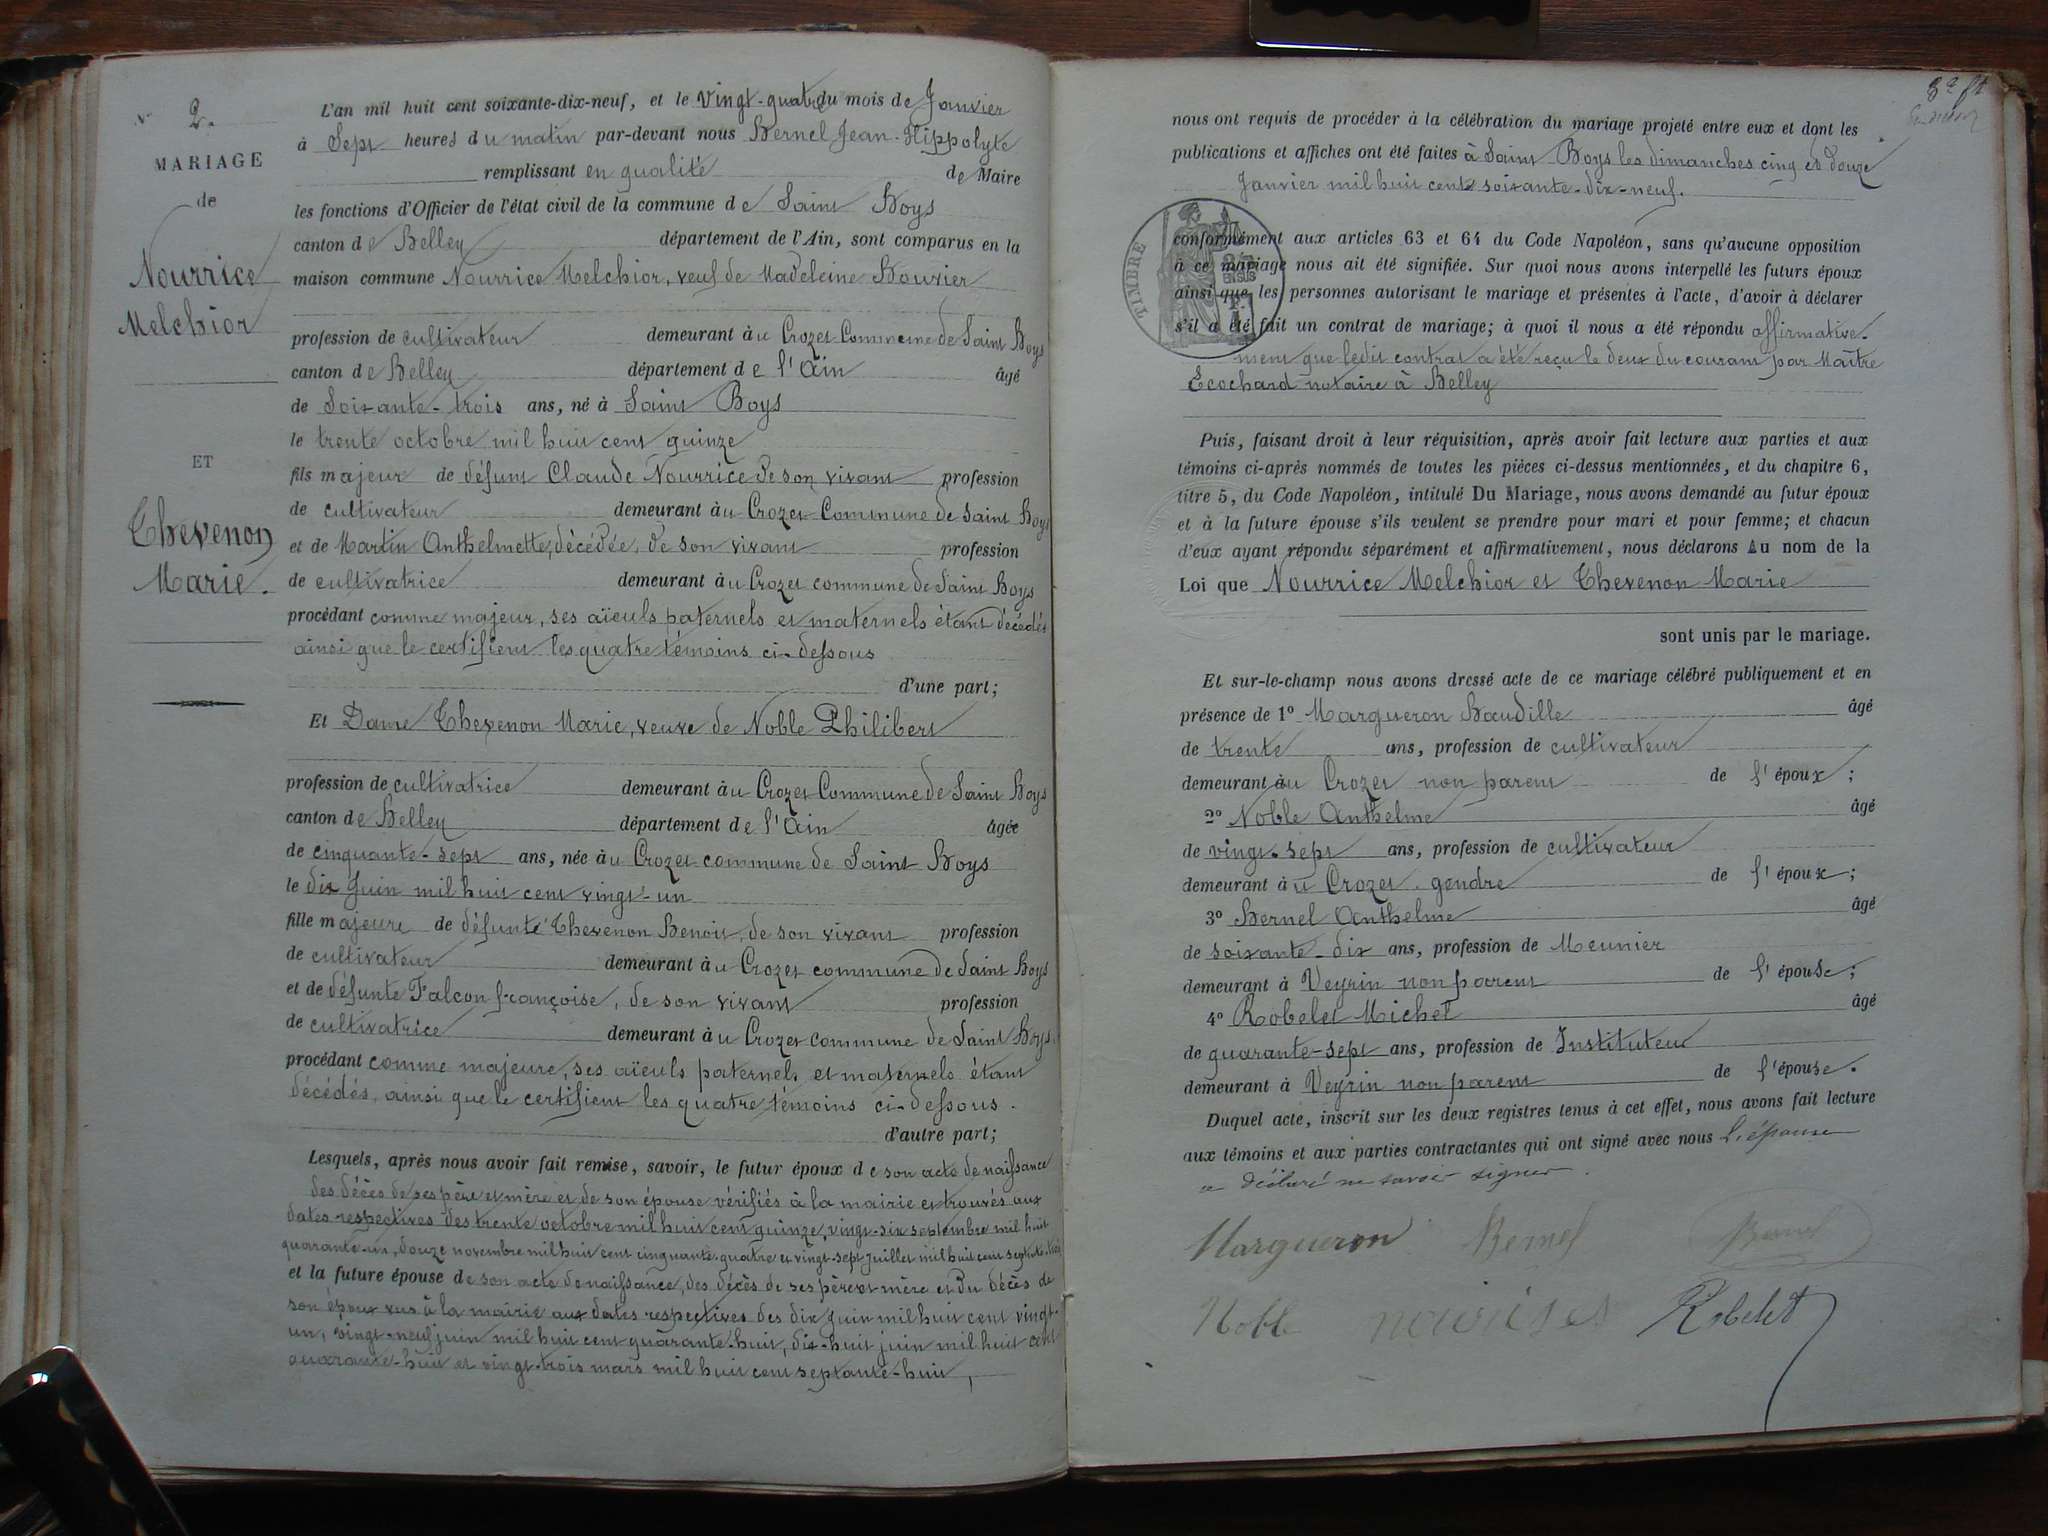 N° 2.
MARIAGE
de
Nourrice
Melchior
ET
Thevenon
Marie.
L'an mil huit cent soixante-dix-neuf, et le vingt-quatre du mois de Janvier
à Sept heures du matin par-devant nous Bernel Jean-Hippolyte
remplissant en qualité de Maire
les fonctions d'Officier de l'état civil de la commune de Saint Boys
canton de Belley département de l'Ain, sont comparus en la
maison commune Nourrice Melchior, veuf de Madeleine Bouvier
profession de cultivateur demeurant au Crozet Commune de Saint Boys
canton de Belley département de l'Ain âgé
de Soixante-trois ans, né à Saint Boys
le trente octobre mil huit cent quinze
fils majeur de défunt Claude Nourrice de son vivant profession
de cultivateur demeurant au Crozet Commune de Saint Boys
et de Martin Anthelmette, décédée, de son vivant profession
de cultivatrice demeurant au Crozet commune de Saint Boys
procédant comme majeur, ses aïeuls paternels et maternels étant décédés
ainsi que le certifient les quatre témoins ci-dessous
d'une part;
Et Dame Thevenon Marie, veuve de Noble Philibert
profession de cultivatrice demeurant au Crozet Commune de Saint Boys
canton de Belley département de l'Ain âgée
de cinquante-sept ans, née au Crozet commune de Saint Boys
le dix Juin mil huit cent vingt-un
fille majeure de défunt Thevenon Benoit, de son vivant profession
de cultivateur demeurant au Crozet commune de Saint Boys
et de défunte Falcon françoise, de son vivant profession
de cultivatrice demeurant au Crozet commune de Saint Boys.
procédant comme majeure, ses aïeuls paternels et maternels étant
décédés, ainsi que le certifient les quatre témoins ci-dessous.
d'autre part;
Lesquels, après nous avoir fait remise, savoir, le futur époux de son acte de naissance
des décès de ses père et mère et de son épouse vérifiés à la mairie et trouvés aux
dates respectives des trente octobre mil huit cent quinze, vingt-six septembre mil huit
quarante-un, douze novembre mil huit cent cinquante-quatre et vingt-sept juillet mil huit cent septante
et la future épouse de son acte de naissance, des décès de ses père et mère et du décès de
son époux vus à la mairie aux dates respectives des dix Juin mil huit cent vingt-
un, vingt-neuf juin mil huit cent quarante-huit, dix-huit juin mil huit cent
quarante-huit et vingt-trois mars mil huit cent septante-huit,
nous ont requis de procéder à la célébration du mariage projeté entre eux et dont les
publications et affiches ont été faites à Saint Boys les dimanches cinq et douze
Janvier mil huit cent soixante-dix-neuf.
TIMBRE
conformément aux articles 63 et 64 du Code Napoléon, sans qu'aucune opposition
à ce mariage nous ait été signifiée. Sur quoi nous avons interpellé les futurs époux
ainsi que les personnes autorisant le mariage et présentes à l'acte, d'avoir à déclarer
s'il a été fait un contrat de mariage; à quoi il nous a été répondu affirmative-
ment que ledit contrat a été reçu le deux du courant par Maître
Ecochard notaire à Belley
Puis, faisant droit à leur réquisition, après avoir fait lecture aux parties et aux
témoins ci-après nommés de toutes les pièces ci-dessus mentionnées, et du chapitre 6,
titre 5, du Code Napoléon, intitulé Du Mariage, nous avons demandé au futur époux
et à la future épouse s'ils veulent se prendre pour mari et pour femme; et chacun
d'eux ayant répondu séparément et affirmativement, nous déclarons Au nom de la
Loi que Nourrice Melchior et Thevenon Marie
sont unis par le mariage.
Et sur-le-champ nous avons dressé acte de ce mariage célébré publiquement et en
présence de 1° Margueron Baudille âgé
de trente ans, profession de cultivateur
demeurant au Crozet non parent de l'époux;
2° Noble Anthelme âgé
de vingt-sept ans, profession de cultivateur
demeurant au Crozet. gendre de l'époux;
3° Bernel Anthelme âgé
de soixante-dix ans, profession de Meunier
demeurant à Veyrin non parent de l'épouse;
4° Robelet Michel âgé
de quarante-sept ans, profession de Instituteur
demeurant à Veyrin non parent de l'épouse.
Duquel acte, inscrit sur les deux registres tenus à cet effet, nous avons fait lecture
aux témoins et aux parties contractantes qui ont signé avec nous L'épouse
a déclaré ne savoir signer.
Margueron Bernel Bernel
Noble Robelet